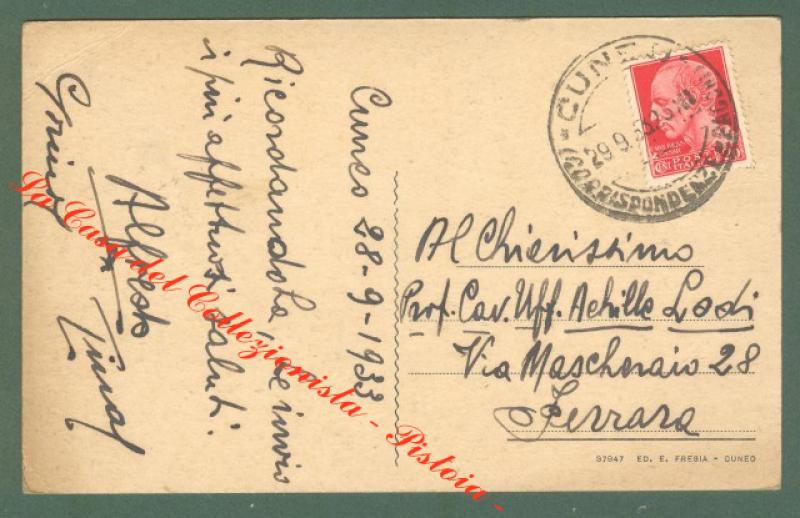 Cuneo 28-9-1933
Ricordandola Le invio
i più affettuosi saluti.
Alfredo
CUNEO
29.9.33
(CORRISPONDENZE
POSTE
ITALIANE
Al Chiarissimo
Prof. Cav. Uff. Achille Lodi
Via Mascheraio 28
Ferrara
37947 ED. E. FRESIA - CUNEO
La Casa del Collezionista - Pistoia -